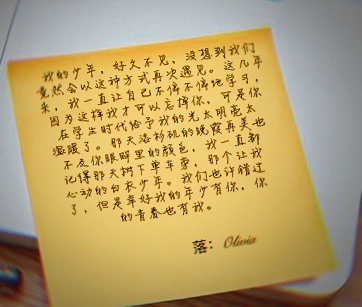 我的少年，好久不见，没想到我们
竟然会以这种方式再次遇见。这几年
来，我一直让自己不停不停地学习，
因为这样我才可以忘掉你，可是你
在学生时代给予我的光太明亮太
温暖了。那天洛杉矶的晚霞再美也
不及你眼眸里的颜色，我一直都
记得那天树下单车旁，那个让我
心动的白衣少年。我们也许错过
了，但是幸好我的年少有你，你
的青春也有我。
落：Olivia